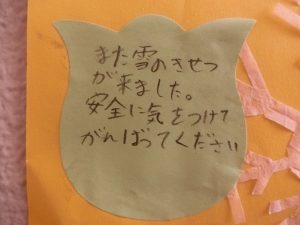 また雪のきせつ
が来ました。
安全に気をつけて
がんばってください